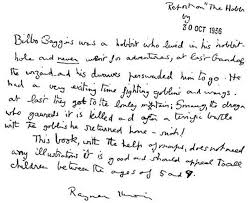 Report on "The Hobbit
by
30 OCT 1936
Bilbo Baggins was a hobbit who lived in his hobbit-
hole and never went for adventures, at last Gandalf
the wizard and his dwarves persuaded him to go. He
had a very exiting time fighting goblins and wargs.
at last they got to the lonley mountain; Smaug, the dragon
who gawreds it is killed and after a terrific battle
with the goblins he returned home - rich!
This book, with the help of maps, does not need
any illustrations it is good and should appeal to all
children between the ages of 5 and 9.
Rayner Unwin